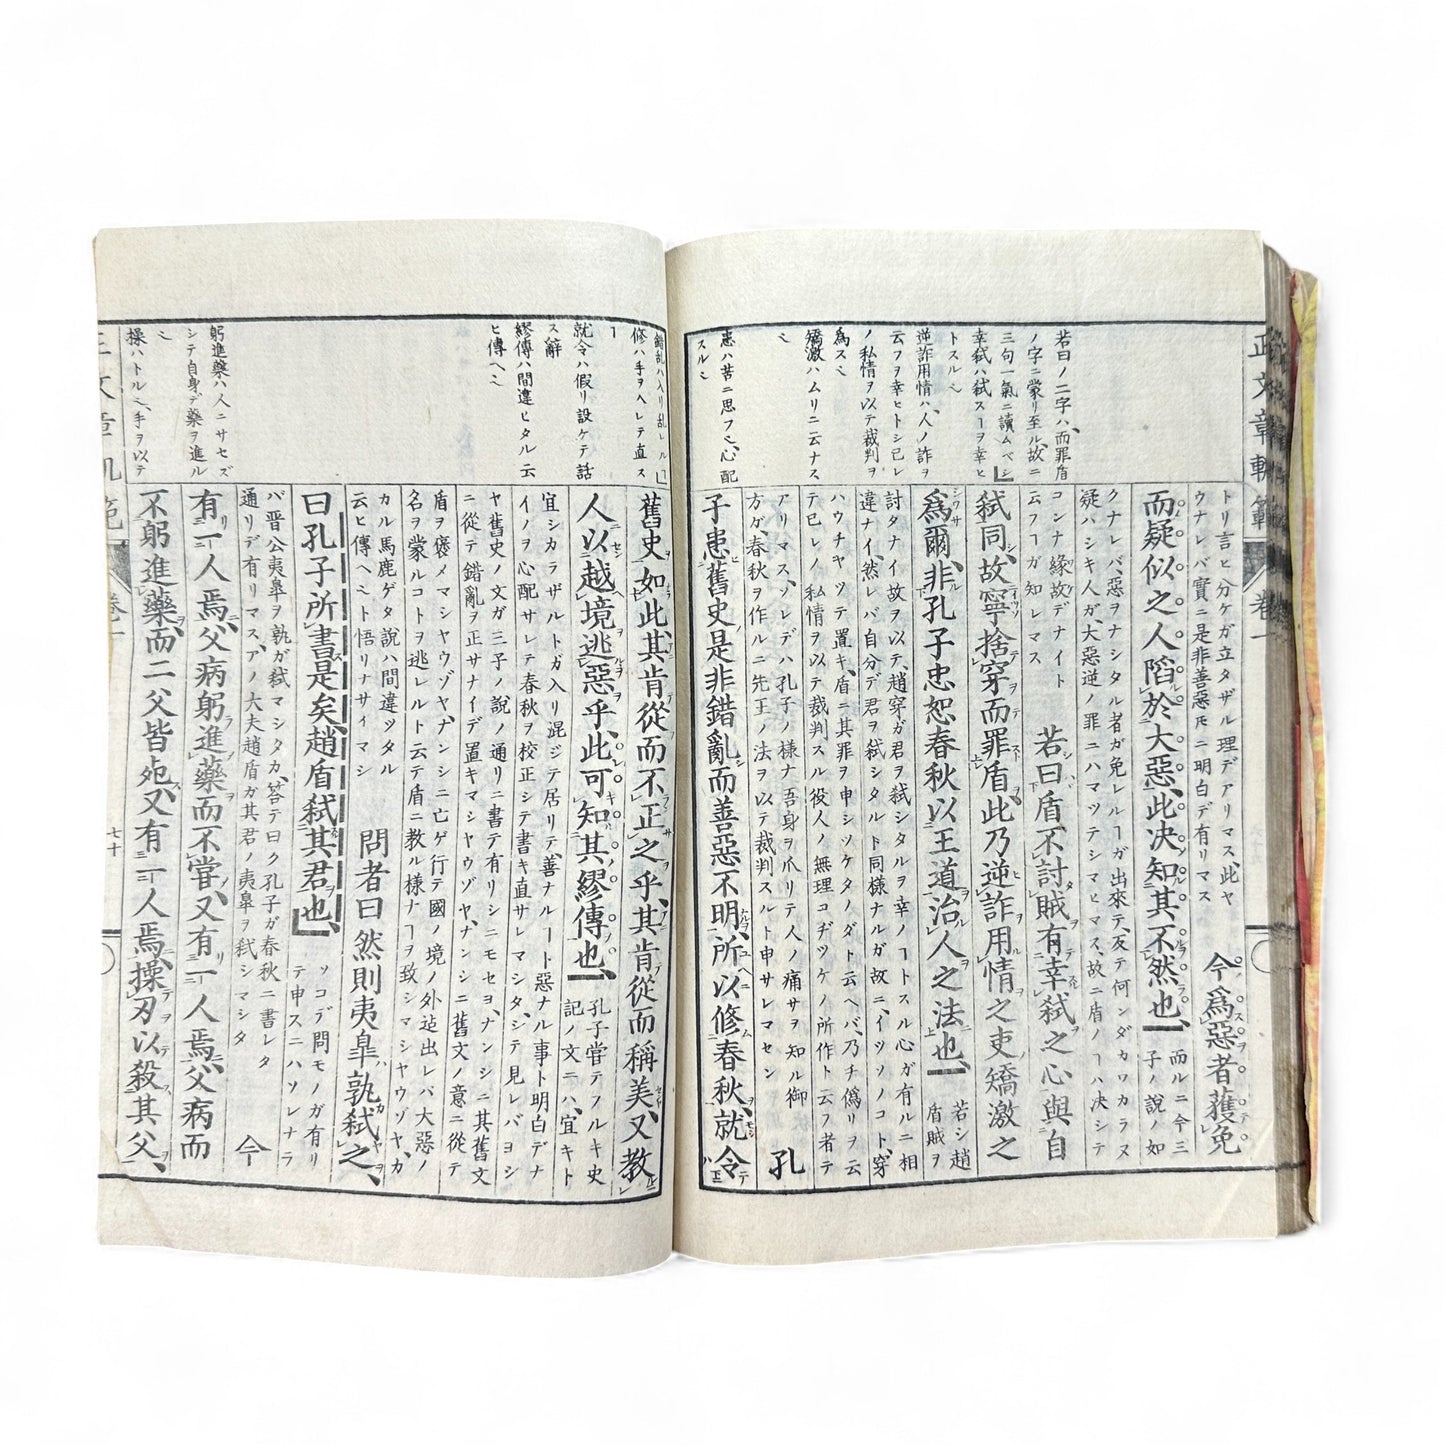 正文章軌範 卷一
若曰ノ二字ハ、而罪盾
ノ字ニ蒙リ至ル、故ニ
三句一氣ニ讀ムベシ
幸弑ハ弑スヿヲ幸ヒ
トスル
逆詐用情ハ、人ノ詐ヲ
云フヲ幸ヒトシ己レ
ノ私情ヲ以テ裁判ヲ
爲ス
矯激ハムリニ云ナス
患ハ苦ニ思フ、心配
スル
トリ言ヒ分ケガ立タザル理デアリマス、此ヤ
ウナレバ實ニ是非善惡モニ明白デ有リマス
今爲惡者獲免
而疑似之人陷於大惡、此決知其不然也、
而ルニ今三
子ノ說ノ如
クナレバ、惡ヲナシタル者ガ免レルヿガ出來テ、反テ何ンダカワカラヌ
疑ハシキ人ガ、大惡逆ノ罪ニハマツテシマヒマス、故ニ盾ノヿハ決シテ
コンナ緣故デナイト
云フヿガ知レマス
若曰盾不討賊、有幸弑之心與自
弑同、故寧捨穿而罪盾、此乃逆詐用情之吏矯激之
爲爾、非孔子忠恕春秋以王道治人之法也、
若シ趙
盾賊ヲ
討タナイ故ヲ以テ、趙穿ガ君ヲ弑シタルヲ幸ノヿトスル心ガ有ルニ相
違ナイ、然レバ自分デ君ヲ弑シタルト同樣ナルガ故ニ、イツソノコト、穿
ハウチヤツテ置キ、盾ニ其罪ヲ申シツケタノダト云ヘバ、乃チ僞リヲ云
テ已レノ私情ヲ以テ裁判スル役人ノ無理コヂツケノ所作ト云フ者テ
アリマス、ソレデハ孔子ノ樣ナ吾身ヲ爪リテ人ノ痛サヲ知ル御
方ガ、春秋ヲ作ルニ先王ノ法ヲ以テ裁判スルト申サレマセン
孔
子患舊史是非錯亂而善惡不明、所以修春秋、就令
錯乱ハ入リ乱レルヿ
修ハ手ヲヘレテ直ス
ヿ
就令ハ假リ設ケテ話
ス辭
繆傳ハ間違ヒタル云
ヒ傳ヘ
躬進藥ハ、人ニサセズ
シテ自身デ藥ヲ進ル
操ハトル、手ヲ以テ
舊史如此、其肯從而不正之乎、其肯從而稱美、又教
人以越境逃惡乎、此可知其繆傳也、
孔子嘗テフルキ史
記ノ文ニハ、宜キト
宜シカラザルトガ入リ混ジテ居リテ、善ナルヿト惡ナル事ト明白デナ
イノヲ心配サレテ春秋ヲ校正シテ書キ直サレマシタ、シテ見レバヨシ
ヤ舊史ノ文ガ三子ノ說ノ通リニ書テ有リシニモセヨ、ナンシニ其舊文
ニ從テ錯亂ヲ正サナイデ置キマシヤウゾヤ、ナンシニ舊文ノ意ニ從テ
盾ヲ褒メマシヤウゾヤ、ナンシニ亡ゲ行テ國ノ境ノ外迠出レバ大惡ノ
名ヲ蒙ルコトヲ逃レルト云テ盾ニ教ル樣ナヿヲ致シマシヤウゾヤ、カ
カル馬鹿ゲタ說ハ間違ツタル
云ヒ傳ヘト悟リナサイマシ
問者曰、然則夷皐孰弑之、
曰、孔子所書是矣、趙盾弑其君也、
ソコデ問モノガ有リ
テ申スニハソレナラ
バ晋公夷皐ヲ孰ガ弑マシタカ、答テ曰ク孔子ガ春秋ニ書レタ
通リデ有リマス、アノ大夫趙盾ガ其君ノ夷皐ヲ弑シマシタ
今
有一人焉、父病躬進藥而不嘗、又有一人焉、父病而
不躬進藥、而二父皆死、又有一人焉、操刃以殺其父、
七十